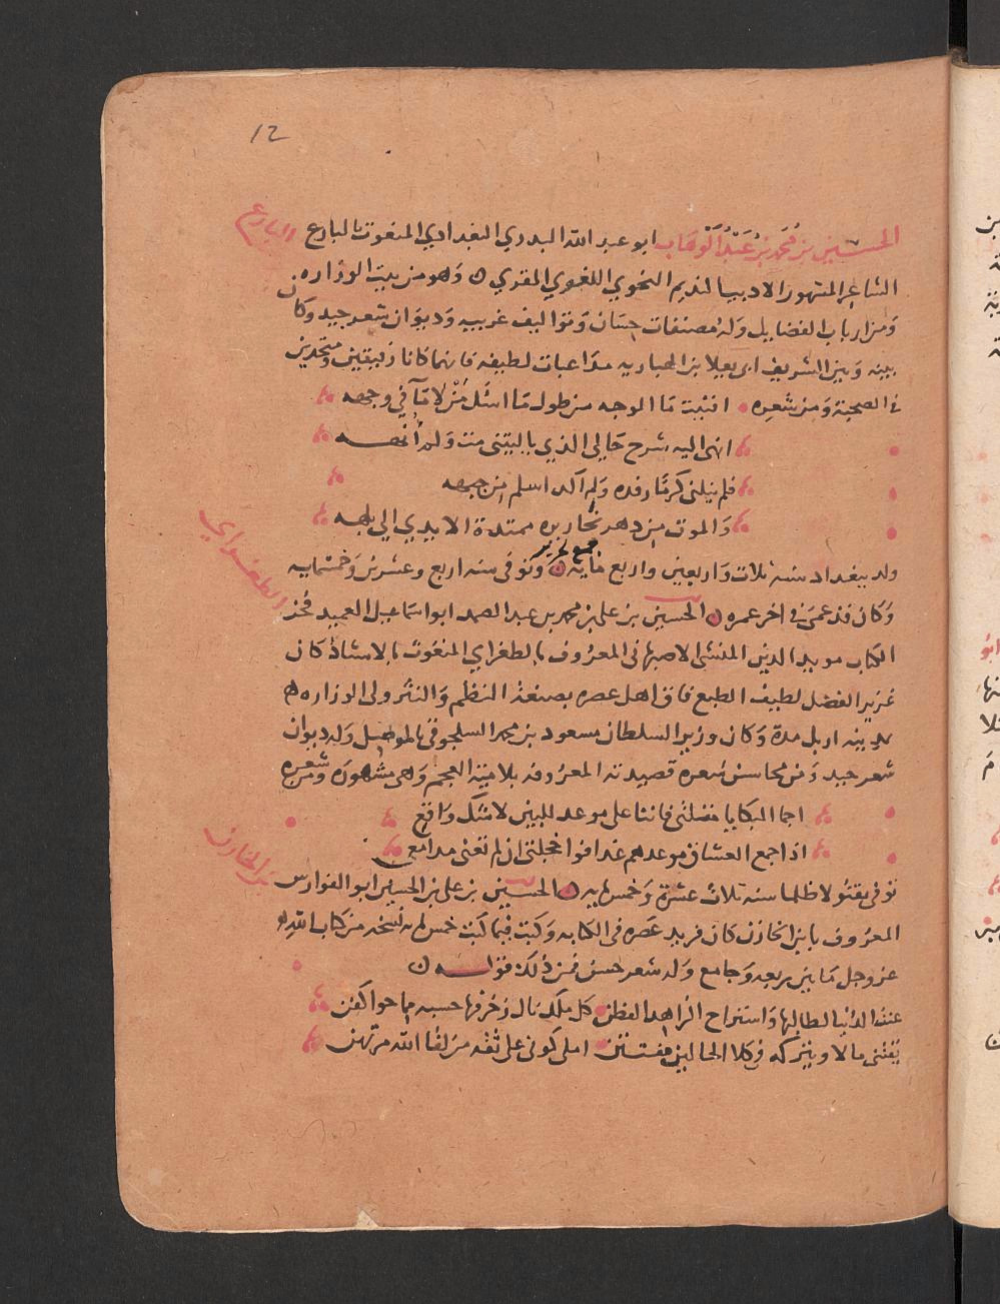 12
الحسين بن محمد بن عبد الوهاب ابو عبد الله البدري البغدادي المنعوت بالبارع
البارع
الشاعر المشهور الاديب النديم النحوي اللغوي المقري وهو من بيت الوزاره
ومن ارباب الفضايل وله مصنفات حسان وتواليف غريبه وديوان شعر جيد وكان
بينه وبين الشريف ابي يعلا بن الهباريه مداعبات لطيفه فانهما كانا رفيقين ومتحدين
في الصحبة ومن شعره افنيت ما الوجه من طول ما اسئل من لا مآ في وجهه
انهي اليه شرح حالي الذي ياليتني مت ولم انهه
فلم ينلني كرمًا رفده ولم اكد اسلم من جبهه
والموت من دهر نحاريره ممتدة الايدي الي بلهه
ولد ببغداد سنه ثلاث واربعين واربع مايه وتوفي سنه اربع وعشرين وخمسمايه
الطغراي
وكان قد عمى في اخر عمره الحسين بن علي بن محمد بن عبد الصمد ابو اسماعيل العميد فخر
الكتاب مويد الدين المنشي الاصبهاني المعروف بالطغراي المنعوت بالاستاذ كان
غزير الفضل لطيف الطبع فاق اهل عصره بصنعة النظم والنثر ولي الوزاره
بمدينه اربل مدة وكان وزير السلطان مسعود بن محمد السلجوقي بالموصل وله ديوان
شعر جيد ومن محاسن شعره قصيدته المعروفه بلامية العجم وهي مشهوره ومن شعره
اجما البكا يا مقلتي فاننا على موعد للبين لاشك واقع
اذا جمع العشاق موعدهم غدا فواخجلتي ان لم تعني مدامعي
بن الخازن
توفي مقتولا ظلما سنه ثلاث عشرة وخمسمايه الحسين بن علي بن الحسين ابو الفوارس
المعروف بابن الخازن كان فريد عصره في الكتابه وكتب فيما كتب خمسمايه نسخه من كتاب الله
عز وجل ما بين ربعه وجامع وله شعر حسن فمن ذلك قوله
عنت الدنيا لطالبها واستراح الزاهد الفطن كل ملك نال زخرفها حسبه مما حوا كفن
يقتني مالا ويتركه في كلا الحالين مفتتن املي كوني علي ثقه من لقا الله مرتهن